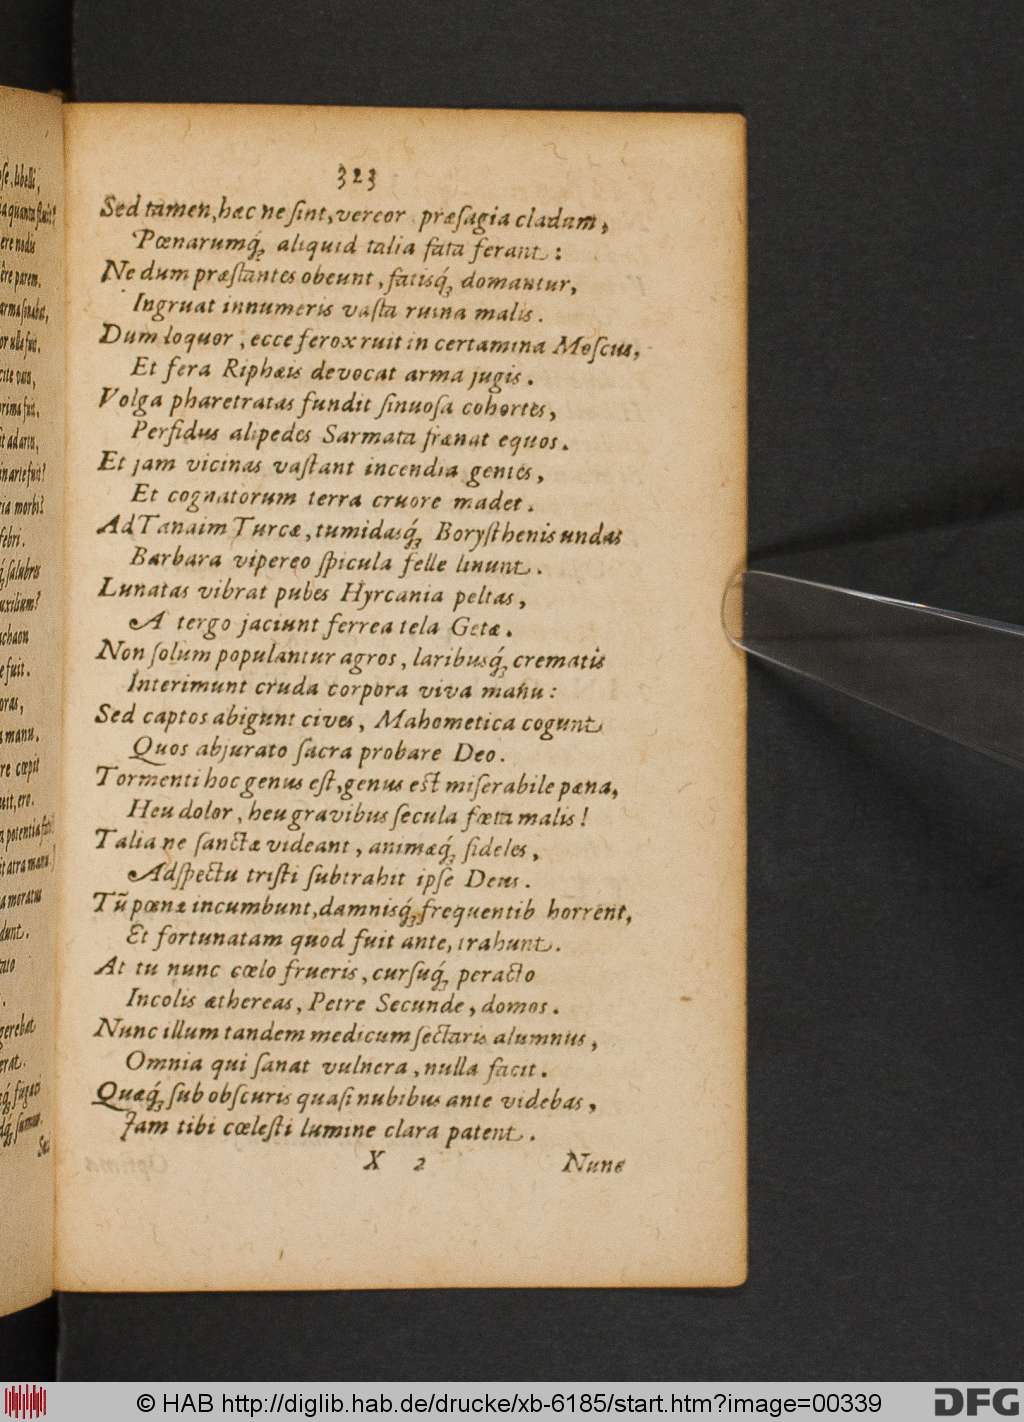 323
Sed tamen, hæc ne ſint, vereor præſagia cladum,
Pœnarumq́; aliquid talia fata ferant:
Ne dum præſtantes obeunt, fatisq́; domantur,
Ingruat innumeris vaſta ruina malis.
Dum loquor, ecce ferox ruit in certamina Moſcus,
Et fera Riphæis devocat arma jugis.
Volga pharetratas fundit ſinuoſa cohortes,
Perfidus alipedes Sarmata frænat equos.
Et jam vicinas vaſtant incendia gentes,
Et cognatorum terra cruore madet.
Ad Tanaim Turcæ, tumidasq́; Boryſthenis undas
Barbara vipereo ſpicula felle linunt.
Lunatas vibrat pubes Hyrcania peltas,
A tergo jaciunt ferrea tela Getæ.
Non ſolum populantur agros, laribusq́; crematis
Interimunt cruda corpora viva manu:
Sed captos abigunt cives, Mahometica cogunt
Quos abjurato ſacra probare Deo.
Tormenti hoc genus eſt, genus eſt miſerabile pœna,
Heu dolor, heu gravibus ſecula fœta malis!
Talia ne ſanctæ videant, animæq́; fideles,
Adſpectu triſti ſubtrahit ipſe Deus.
Tũ pœnæ incumbunt, damnisq́; frequentib horrent,
Et fortunatam quod fuit ante, trahunt.
At tu nunc cœlo frueris, curſuq́; peracto
Incolis æthereas, Petre Secunde, domos.
Nunc illum tandem medicum ſectaris alumnus,
Omnia qui ſanat vulnera, nulla facit.
Quæq́; ſub obſcuris quaſi nubibus ante videbas,
Jam tibi cœleſti lumine clara patent.
X 2 Nunc
© HAB http://diglib.hab.de/drucke/xb-6185/start.htm?image=00339
DFG